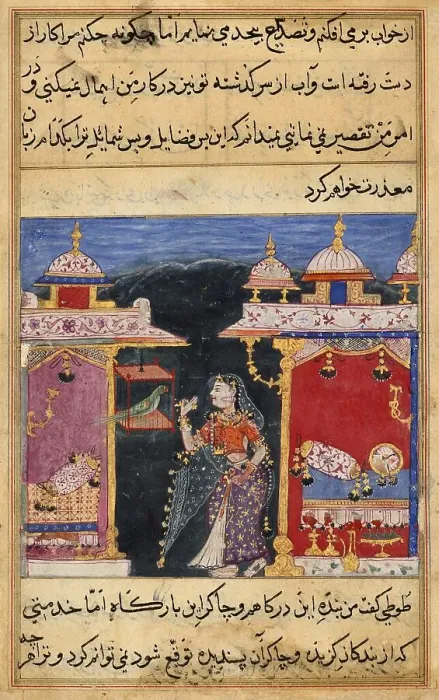 از خواب بر می افکنم و تصدیع بیحد می نمایم اما چکونه چکنم مرا کار از
دست رفته است و آب از سر گذشته تو نیز در کار من اهمال نمیکنی و در
امر من تقصیر نمی نمائی نمیدانم که این بس فضایل و بس شمایل ترا بکدام زبان
معذرت خواهم کرد
طوطی گفت من بنده این درکاهم و چاکر این بارگاه اما خدمتی
که از بندکان گزیده و چاکران پسندیده توقع شود نمی توانم کرد و ترا هر چه